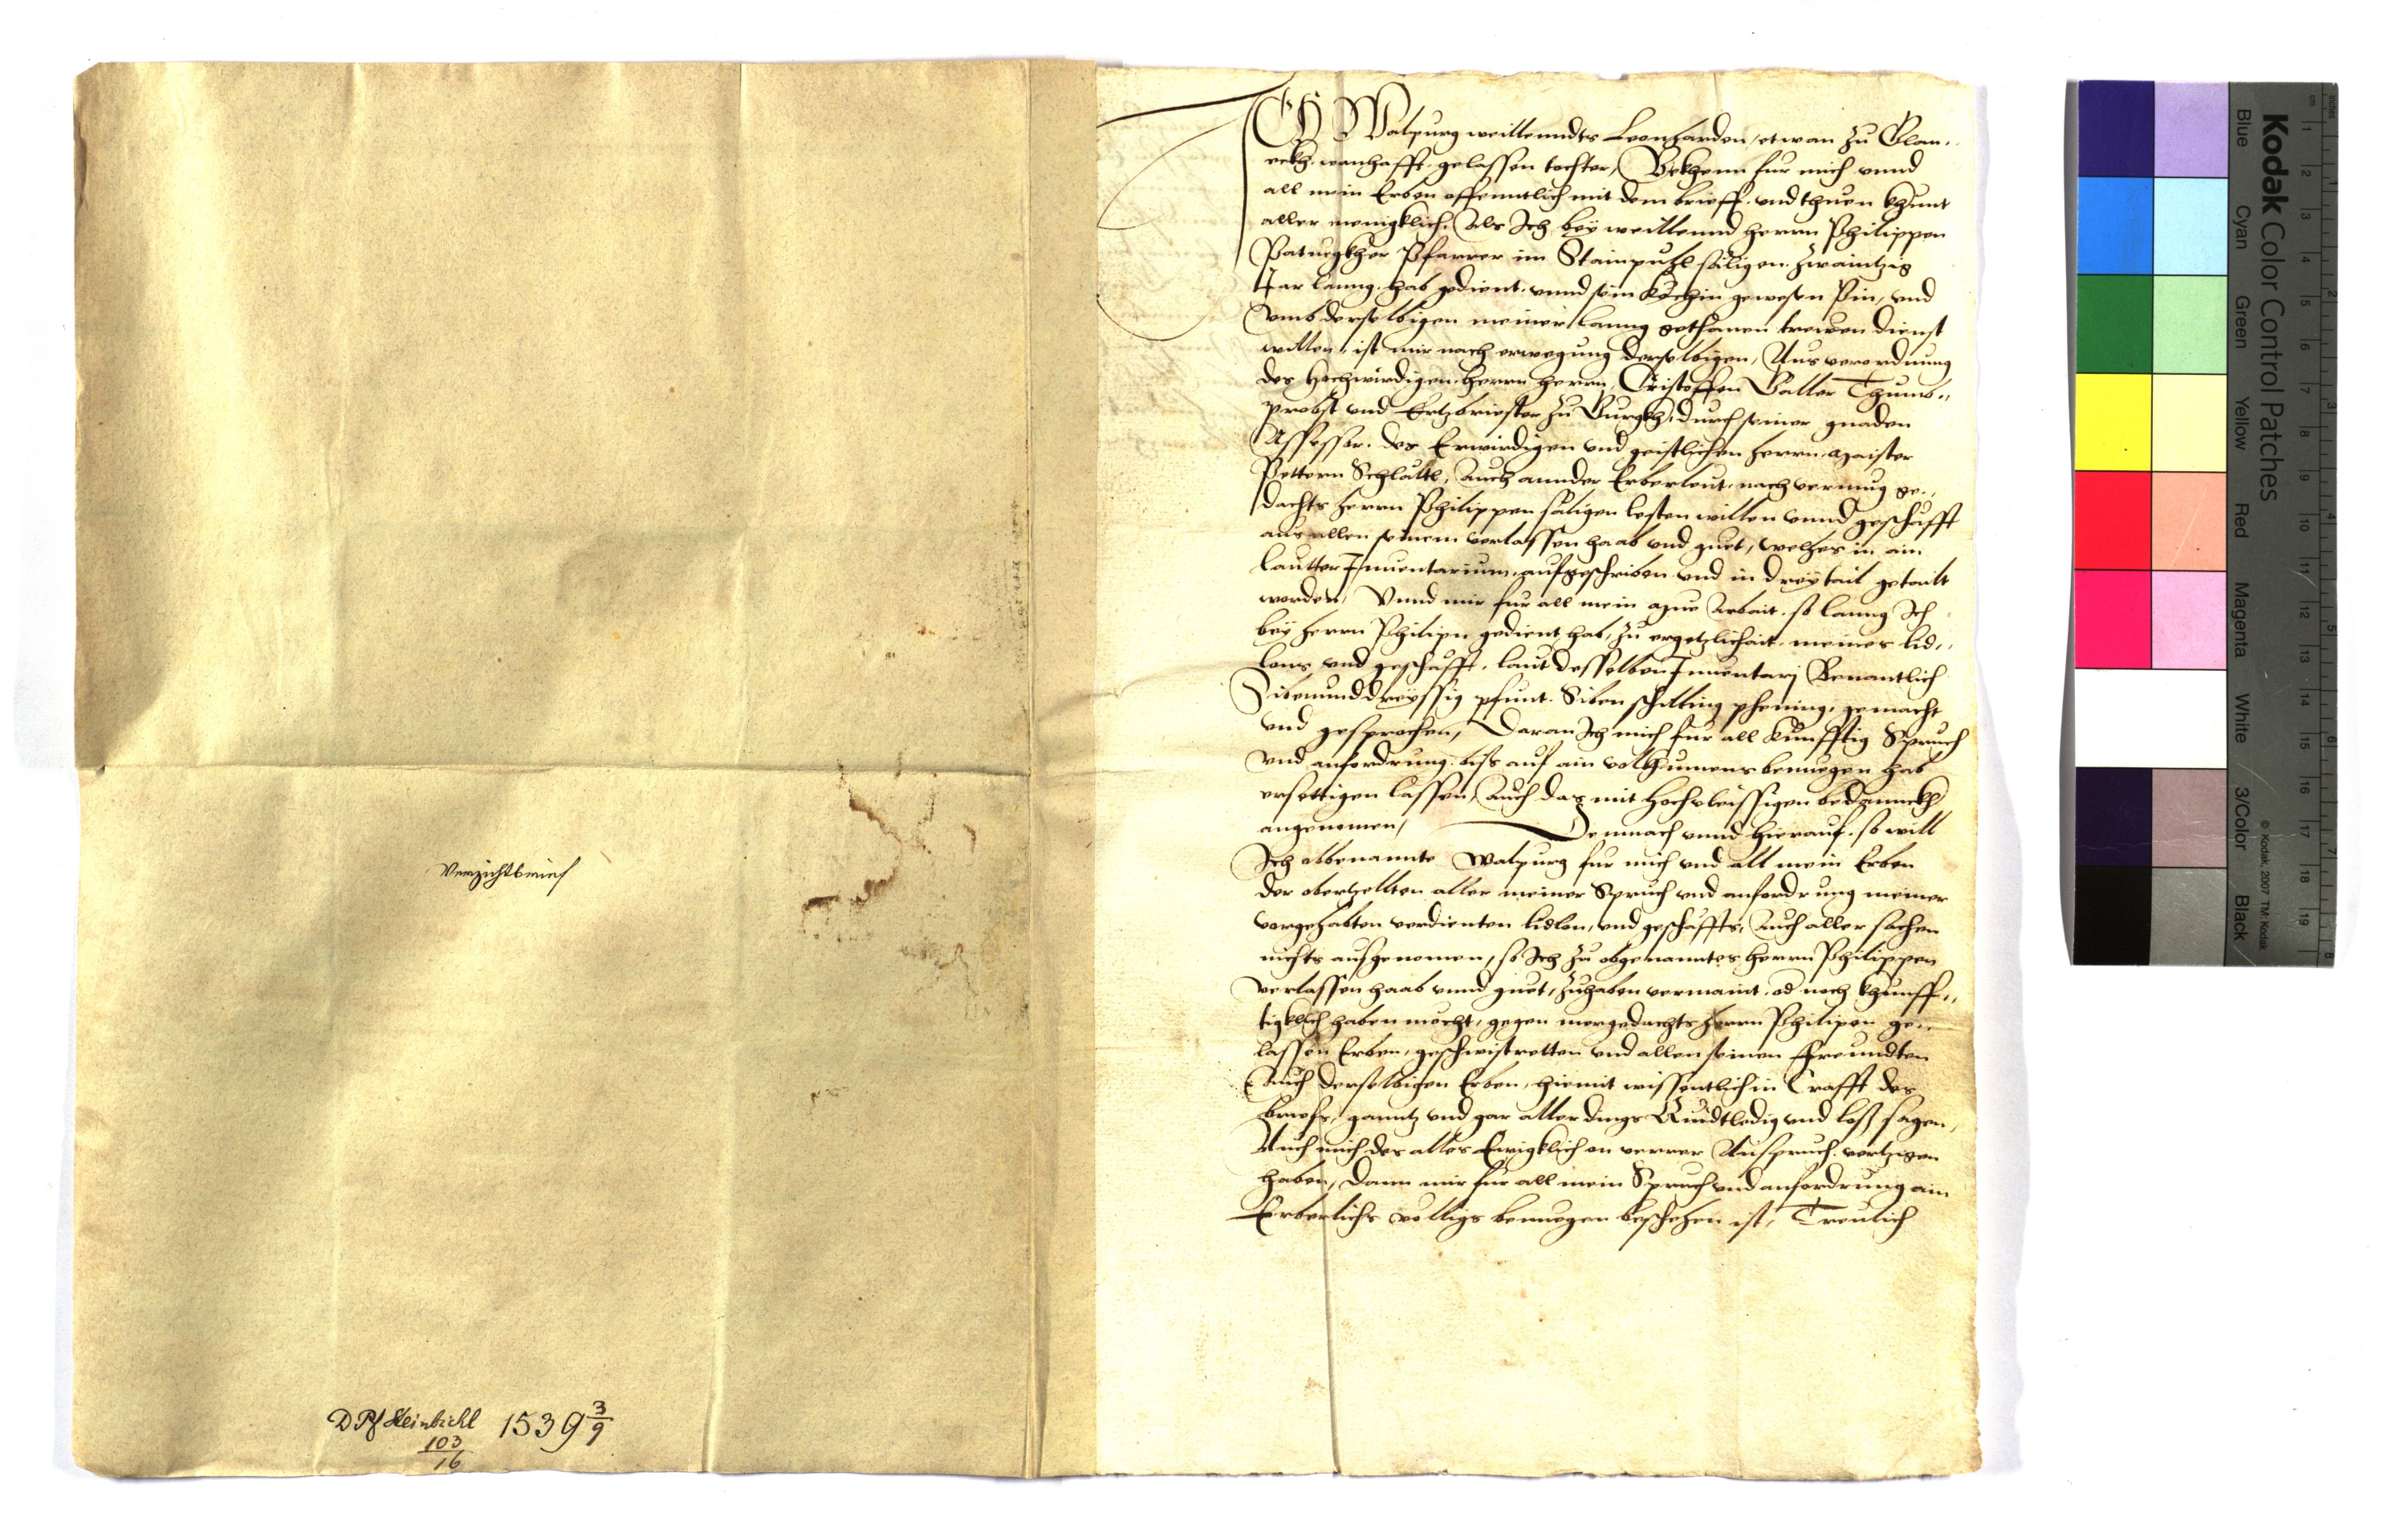 Verzichtbrief
D Pf Steinbichl 1539 3/9
103/16
ICH Walpurg weillenndts Leonharden, etwan zu Glan„
egkh wonhafft gelassen tochter, Bekhenn fur mich vnnd
all mein Erben offenntlich mit dem brieff, vnd thuen khunt
aller menigklich, Als Ich bey weillennd herrn Philippen
Pfarrer im Stainpuhl säligen zwaintzig
Jar lanng hab gedient, vnnd sein Köchin gewesen Pin, vnd
vmb derselbigen meiner lanng gethanen trewen dienst
willen, ist mir nach erwegung derselbigen, Aus verordnung
des Hochwirdigen herrn herrn, Cristoffen Galler Thumb„
probst vnd Ertzbriester zu Gurgkh, durch seiner gnaden
Assessor, des Erwirdigen vnd geistlichen herrn maister
Pettern Schlältl, Auch annder Erberleut, nach vermug ge„
dachts herrn Philippen säligen lesten willen vnnd geschäfft
aus allen seinem verlassen haab vnd guet, welhes in ain
lautter Innuentarium, aufgeschriben vnd in drey tail getailt
worden, Vnnd mir fur all mein mue Arbait, so lanng Ich
bey herrn Philipn gedient hab, zu ergetzlichait meines lid„
lons vnd geschäfft, laut desselben Innuentarj Benantlich
Sibenunddreyssig pfunt Siben schilling phening, gemacht
vnd gesprochen, Daran Ich mich fur all Kunfftig Spruch
vnd anfordrung, biss auf ain volkhumens benuegen hab
ersettigen lassen, Auch das mit hochvleissigen bedannckh
angenomen, Demnach vnnd hierauf, so will
Ich obbenannte Walpurg fur mich vnd all mein Erben
der obertzellten aller meiner Spruch vnd anfordrung meiner
vorgehabten verdienten lidlon, vnd geschäffts, Auch aller sachen
nichts ausgenomen, so Ich zu obgenanntes herrn Philippen
verlassen haab vnnd guet, zuhaben vermaint, od noch khunff„
tigklich haben möcht, gegen mergedachts herrn Philipen ge„
lassen Erben, geschwistretten vnd allen seinen Freundten
Auch derselbigen Erben, hiemit wissentlich in Crafft des
briefs, ganntz vnd gar aller dings Quidtledig vnd loss sagen,
Auch mich des alles Ewigklich on verrer Anspruch vertzigen
haben, Dann mir fur all mein Spruch vnd anfordrung ain
Erberlichs völligs benuegen beschehen ist, Treulich
Kodak Color Control Patches
Blue Cyan Green Yellow Red Magenta White 3/Color Black
© Kodak, 2007 TM: Kodak